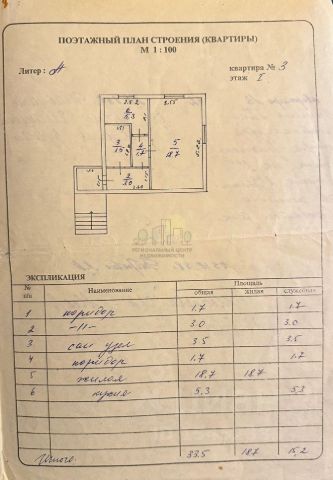 ПОЭТАЖНЫЙ ПЛАН СТРОЕНИЯ (КВАРТИРЫ)
М 1 : 100
Литер : А
квартира № 3
этаж I
2.52
3.55
6
5.3
3
3.5
4
1.7
5
18.7
2
3.0
РЕГИОНАЛЬНЫЙ ЦЕНТР
НЕДВИЖИМОСТИ
ЭКСПЛИКАЦИЯ
№ п/п Наименование Площадь
общая жилая служебная
1 коридор 1.7 1.7
2 -II- 3.0 3.0
3 сан узел 3.5 3.5
4 коридор 1.7 1.7
5 жилая 18,7 18,7
6 кухня 5,3 5,3
Итого: 33.5 18.7 15,2